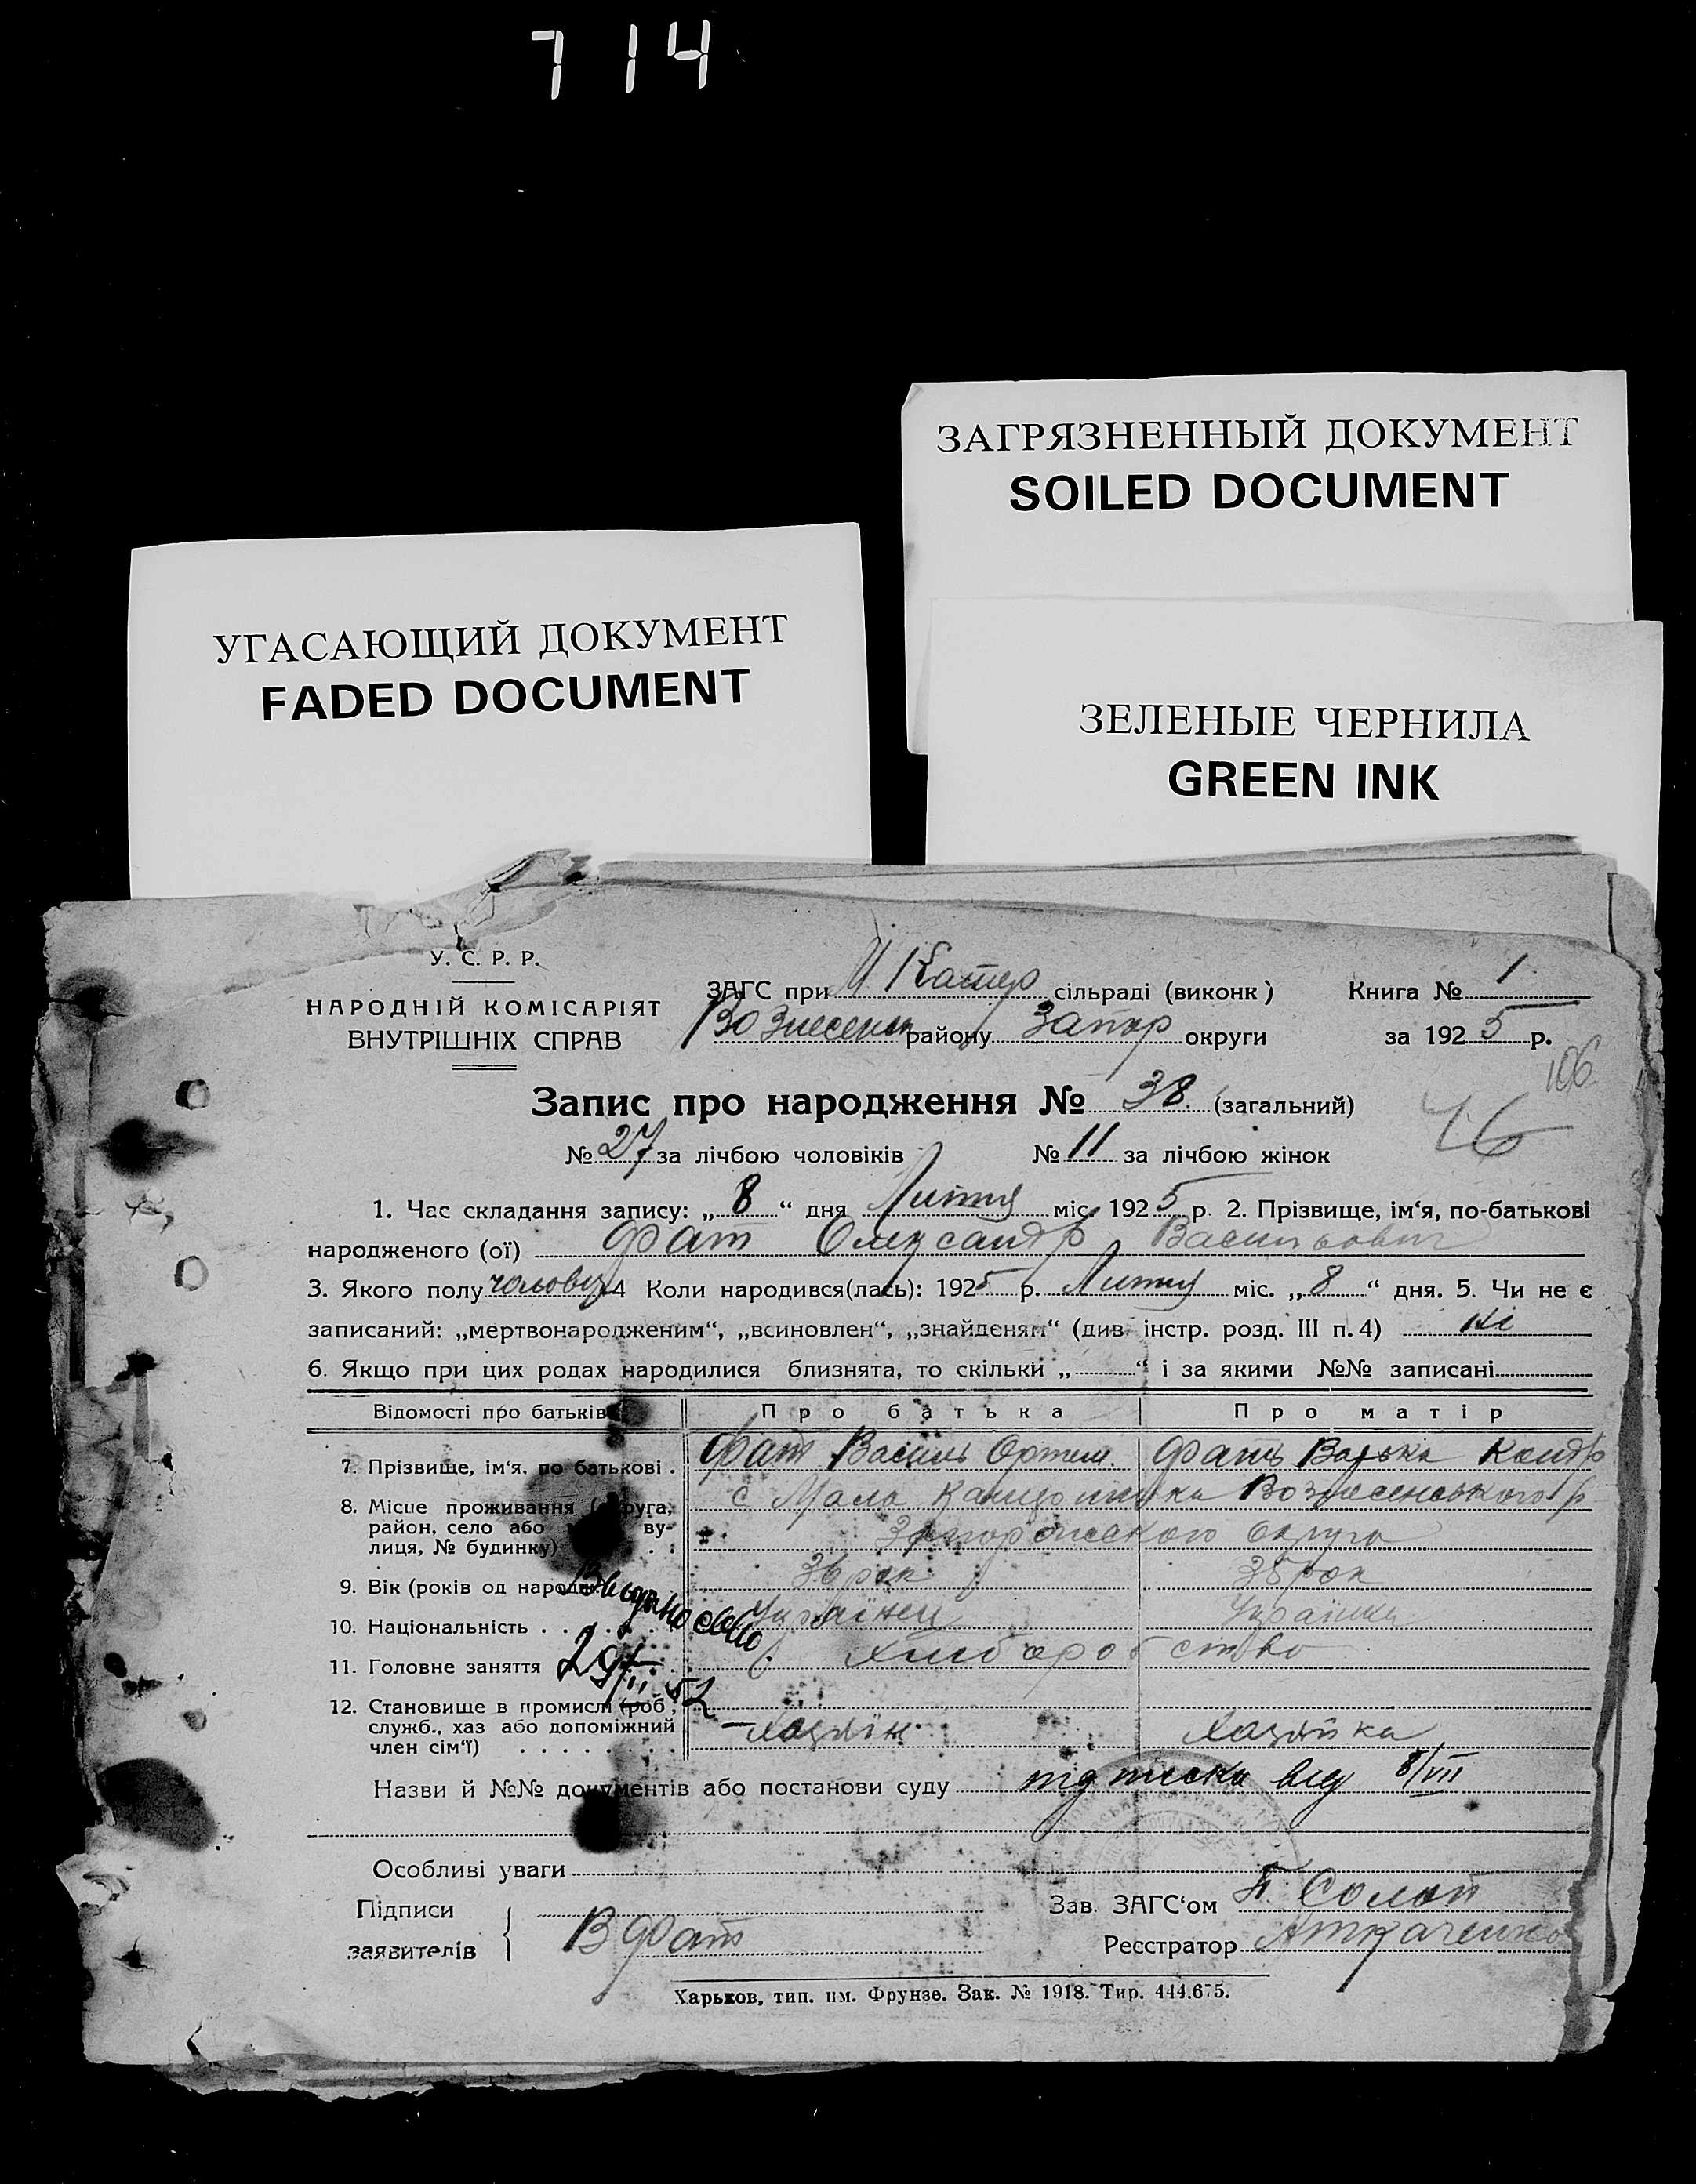 714
ЗАГРЯЗНЕННЫЙ ДОКУМЕНТ
SOILED DOCUMENT
УГАСАЮЩИЙ ДОКУМЕНТ
FADED DOCUMENT
ЗЕЛЕНЫЕ ЧЕРНИЛА
GREEN INK
У. С. Р. Р.
НАРОДНІЙ КОМІСАРІЯТ
ВНУТРІШНІХ СПРАВ
ЗАГС при Катер сільраді (виконк) Книга № 1
Вознесенк району Запор округи за 1925 р.
106
Запис про народження № 38 (загальний)
46
№ 27 за лічбою чоловіків № 11 за лічбою жінок
1. Час складання запису: „8“ дня Липня міс. 1925 р. 2. Прізвище, ім‘я, по-батькові
народженого (ої) Фат Олександр Васильович
3. Якого полу чоловіч 4 Коли народився(лась): 1925 р. Липня міс. „8“ дня. 5. Чи не є
записаний: „мертвонародженим“, „всиновлен“, „знайденям“ (див. інстр. розд. III п. 4) Ні
6. Якщо при цих родах народилися близнята, то скільки „ “ і за якими №№ записані
Відомості про батьків Про батька Про матір
7. Прізвище, ім‘я, по батькові . Фат Василь Ортем. Фать Варька Кондр
8. Місце проживання (округа, с Мала Вознесенського р
район, село або ву- Запорожského округа
лиця, № будинку)
9. Вік (років од народж. 36 рок 35 рок
10. Національність Українец Українка
11. Головне заняття Хліборобство
29/II 52
12. Становище в промислі (роб.,
служб., хаз або допоміжний Хазяїн Хазяйка
член сім‘ї)
Назви й №№ документів або постанови суду підписка від 8/VII
Особливі уваги
Підписи Зав. ЗАГС‘ом П. Солоп
заявителів В Фат Реєстратор Ткаченко
Харьков, тип. им. Фрунзе. Зак. № 1918. Тир. 444.675.